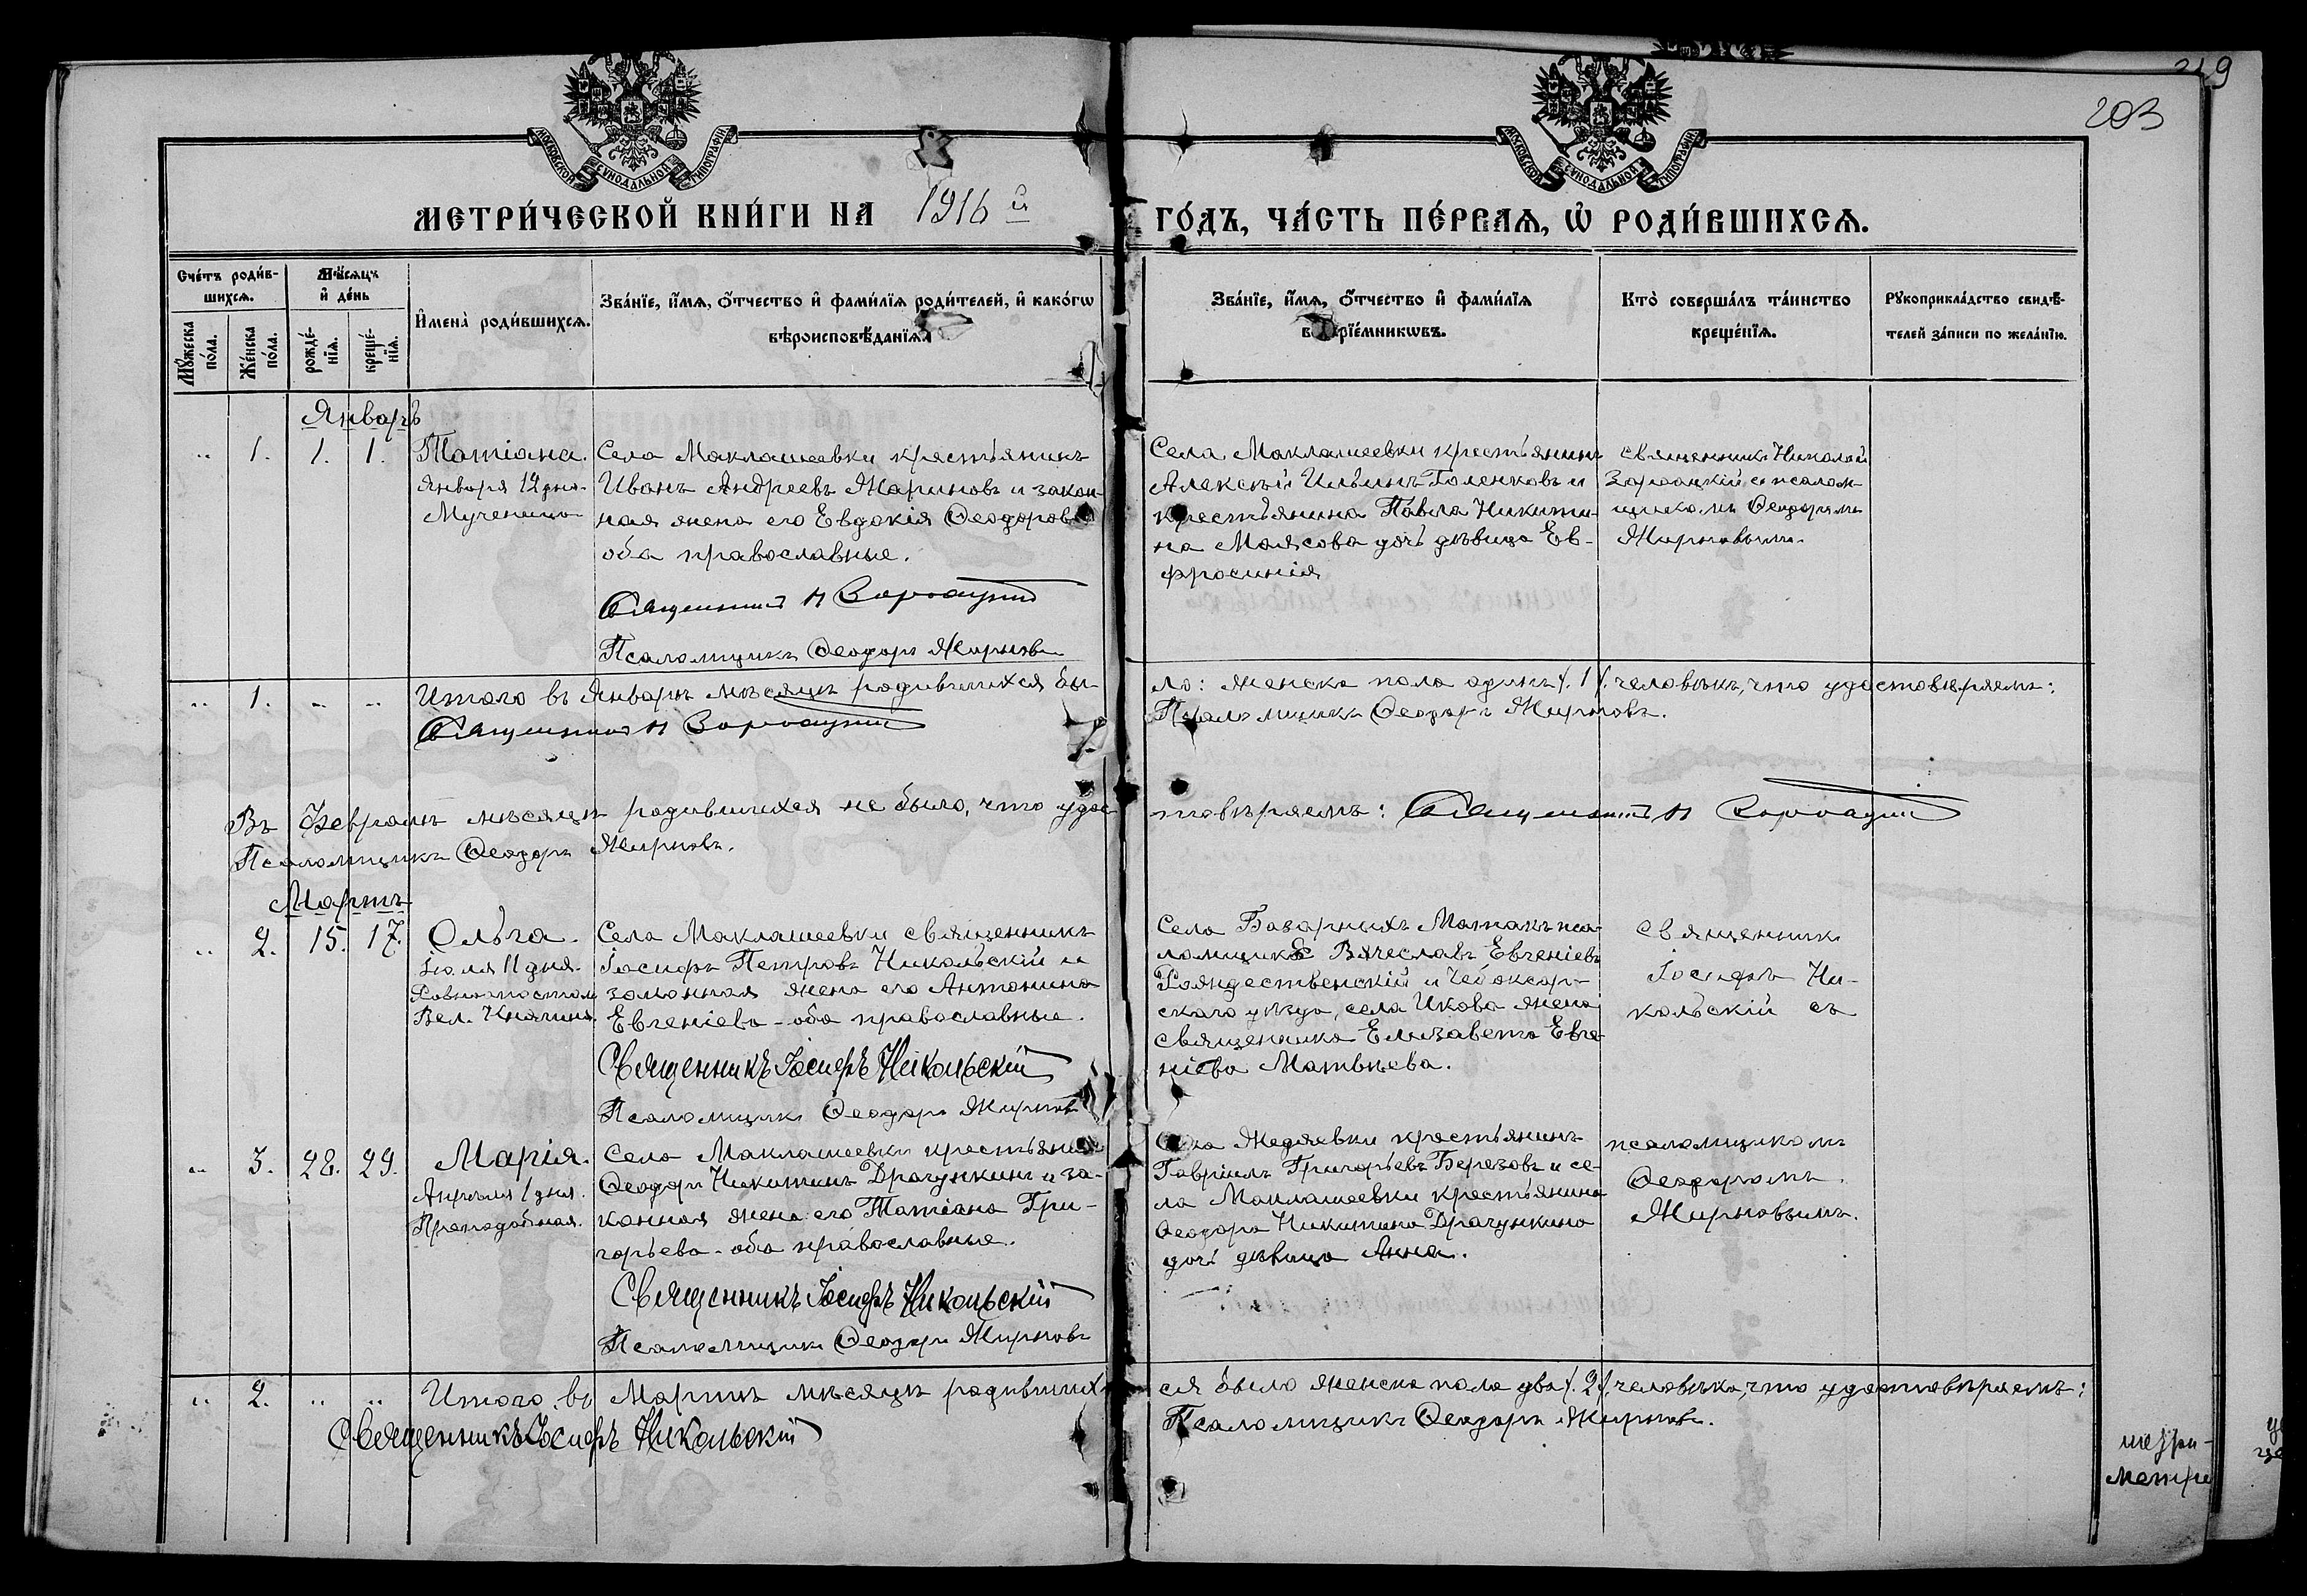 219
203
МОСКОВСКОЙ СѴНОДАЛЬНОЙ ТИПОГРАФІИ
МОСКОВСКОЙ СѴНОДАЛЬНОЙ ТИПОГРАФІИ
МЕТРИ́ЧЕСКОЙ КНИ́ГИ НА 1916 й ГО́ДЪ, ЧА́СТЬ ПЕ́РВАѦ, Ѡ҆ РОДИ́ВШИХСѦ.
Сче́тъ роди́в-
шихсѧ.
Мꙋ́жеска по́ла.
Же́нска по́ла.
Мѣ́сѧцъ
и҆ де́нь
рожде́-
нїѧ.
креще́-
нїѧ.
И҆мена̀ роди́вшихсѧ.
Зва́нїе, и҆́мѧ, ѻ҆́тчество и҆ фами́лїѧ роди́телей, и҆ како́гѡ
вѣроисповѣ́данїѧ.
Зва́нїе, и҆́мѧ, ѻ҆́тчество и҆ фами́лїѧ
в рїе́мникѡвъ.
Кто̀ соверша́лъ та́инство
креще́нїѧ.
Рꙋкоприкла́дство свидѣ́-
телей за́писи по жела́нїю.
Январь
.. 1. 1. 1.
Татіана.
Января 12 дня.
Мученица
Села Маклашеевки крестьянинъ
Иванъ Андреевъ Жариновъ и закон-
ная жена его Евдокія Ѳеодорова
оба православные.
Священникъ Н Зороацкій
Псаломщикъ Ѳеодоръ Жирновъ
Села Маклашеевки крестьянинъ
Алексѣй Ильинъ Голенковъ и
крестьянина Павла Никити-
на Маясова дочь дѣвица Ев-
фросинія
Священникъ Николай
Зороацкій съ псалом-
щикомъ Ѳеодоромъ
Жирновымъ.
.. 1. .. .. Итого въ Январѣ мѣсяцѣ родившихся бы-
ло: женска пола одинъ /. 1 /. человѣкъ, что удостовѣряемъ:
Священникъ Н Зороацкій
Псаломщикъ Ѳеодоръ Жирновъ.
Въ Февралѣ мѣсяцѣ родившихся не было, что удос-
товѣряемъ: Священникъ Н Зороацкій
Псаломщикъ Ѳеодоръ Жирновъ.
Мартъ
.. 2. 15. 17.
Ольга.
Іюля 11 дня.
Равноапостол.
Вел. Княгиня.
Села Маклашеевки священникъ
Іосифъ Петровъ Никольскій и
законная жена его Антонина
Евгеніева - оба православные.
Священникъ Іосифъ Никольскій
Псаломщикъ Ѳеодоръ Жирновъ
Села Базарныхъ Матакъ пса-
ломщикъ Вячеславъ Евгеніевъ
Рождественскій и Чебоксар-
скаго уѣзда, села Икова жена
священника Елизавета Евге-
ніева Матвѣева.
Священникъ
Іосифъ Ни-
кольскій съ
.. 3. 28. 29.
Марія.
Апрѣля 1 дня.
Преподобная.
Села Маклашеевки крестьянинъ
Ѳеодоръ Никитинъ Драгункинъ и за-
конная жена его Татіана Гри-
горьева - оба православные.
Священникъ Іосифъ Никольскій
Псаломщикъ Ѳеодоръ Жирновъ
Села Жедяевки крестьянинъ
Гавріилъ Григорьевъ Березовъ и се-
ла Маклашеевки крестьянина
Ѳеодора Никитина Драгункина
дочь дѣвица Анна.
псаломщикомъ
Ѳеодоромъ
Жирновымъ.
.. 2. .. .. Итого въ Мартѣ мѣсяцѣ родивших-
ся было женска пола два /. 2 /. человѣка, что удостовѣряемъ:
Священникъ Іосифъ Никольскій
Псаломщикъ Ѳеодоръ Жирновъ.